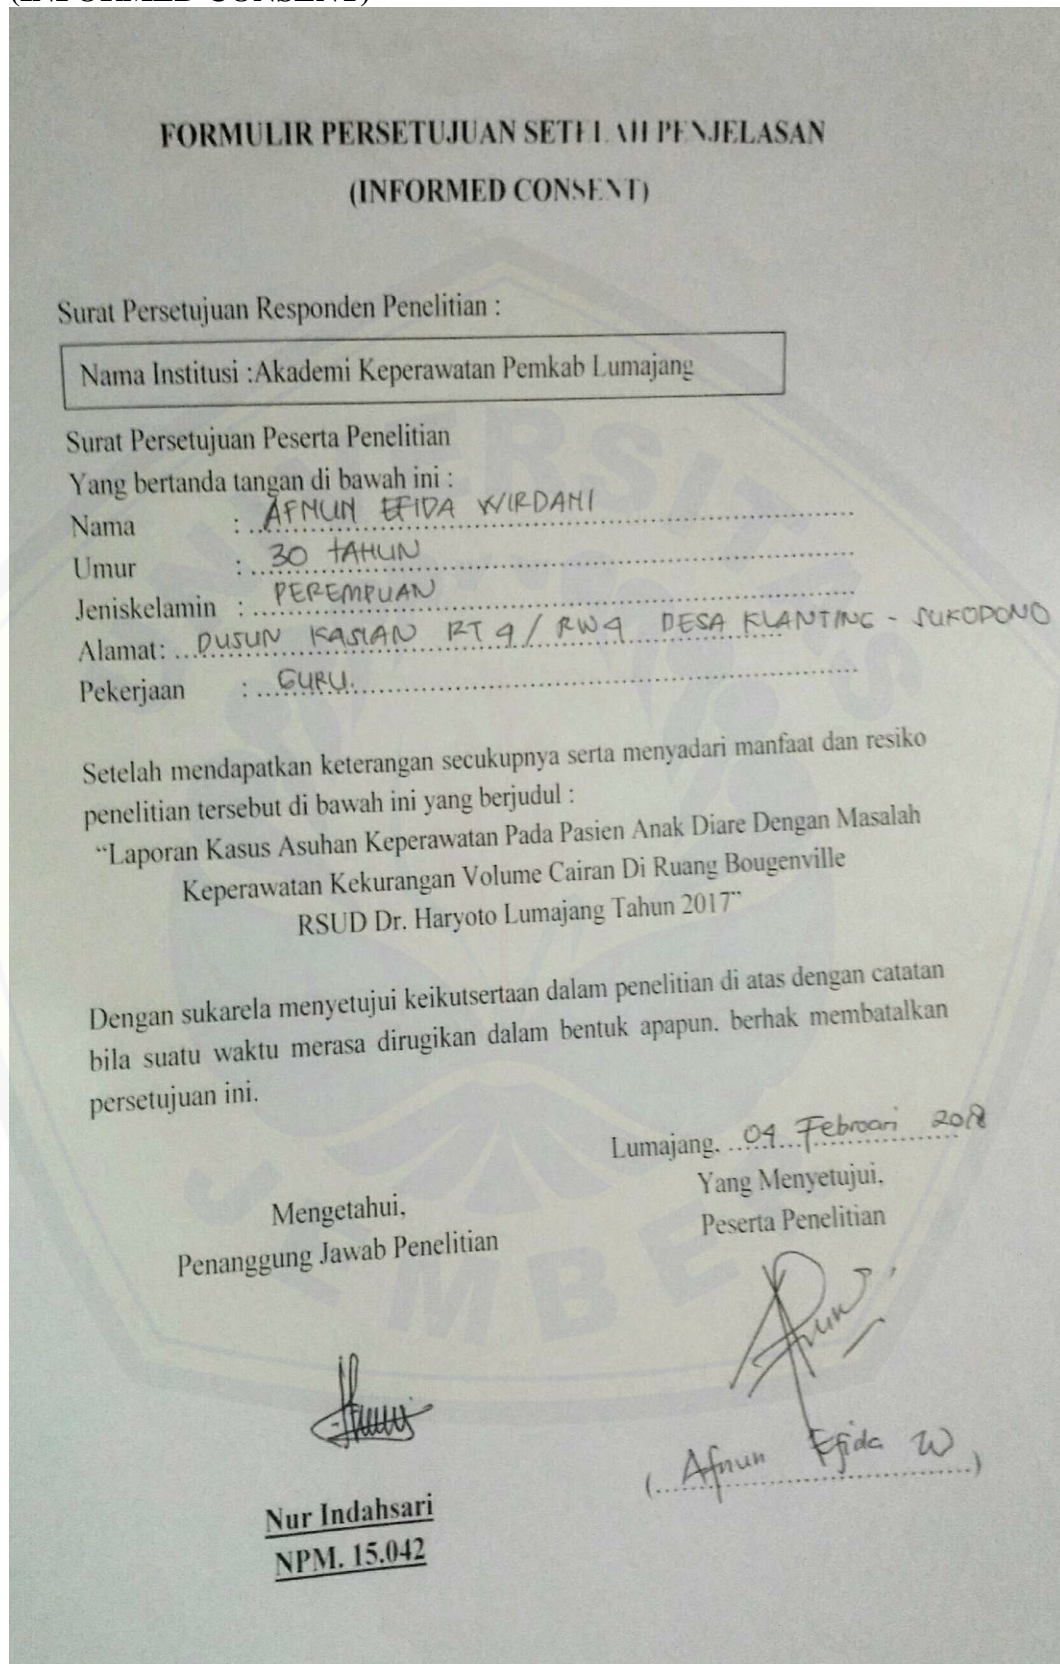 (INFORMED CONSENT)
FORMULIR PERSETUJUAN SETELAH PENJELASAN
(INFORMED CONSENT)
Surat Persetujuan Responden Penelitian :
Nama Institusi :Akademi Keperawatan Pemkab Lumajang
Surat Persetujuan Peserta Penelitian
Yang bertanda tangan di bawah ini :
Nama : AFNUN EFIDA WIRDANI
Umur : 30 TAHUN
Jeniskelamin : PEREMPUAN
Alamat: DUSUN KASIAN RT 4 / RW 4 DESA KLANTING - SUKODONO
Pekerjaan : GURU.
Setelah mendapatkan keterangan secukupnya serta menyadari manfaat dan resiko
penelitian tersebut di bawah ini yang berjudul :
“Laporan Kasus Asuhan Keperawatan Pada Pasien Anak Diare Dengan Masalah
Keperawatan Kekurangan Volume Cairan Di Ruang Bougenville
RSUD Dr. Haryoto Lumajang Tahun 2017”
Dengan sukarela menyetujui keikutsertaan dalam penelitian di atas dengan catatan
bila suatu waktu merasa dirugikan dalam bentuk apapun. berhak membatalkan
persetujuan ini.
Lumajang, 04 Februari 2018
Yang Menyetujui,
Mengetahui,
Peserta Penelitian
Penanggung Jawab Penelitian
(Afnun Efida W)
Nur Indahsari
NPM. 15.042
UNIVERSITAS
JEMBER